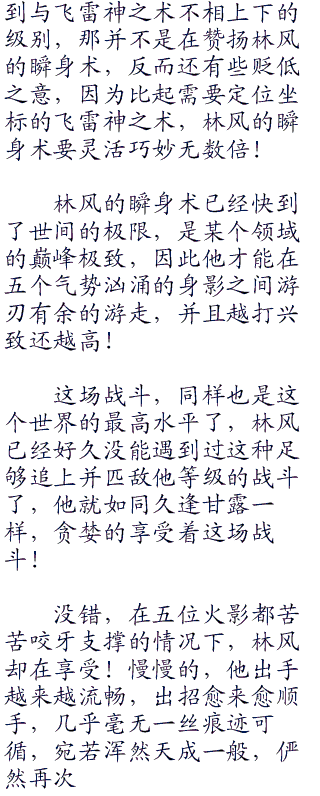 到与飞雷神之术不相上下的
级别，那并不是在赞扬林风
的瞬身术，反而还有些贬低
之意，因为比起需要定位坐
标的飞雷神之术，林风的瞬
身术要灵活巧妙无数倍！
林风的瞬身术已经快到
了世间的极限，是某个领域
的巅峰极致，因此他才能在
五个气势汹涌的身影之间游
刃有余的游走，并且越打兴
致还越高！
这场战斗，同样也是这
个世界的最高水平了，林风
已经好久没能遇到过这种足
够追上并匹敌他等级的战斗
了，他就如同久逢甘露一
样，贪婪的享受着这场战
斗！
没错，在五位火影都苦
苦咬牙支撑的情况下，林风
却在享受！慢慢的，他出手
越来越流畅，出招愈来愈顺
手，几乎毫无一丝痕迹可
循，宛若浑然天成一般，俨
然再次